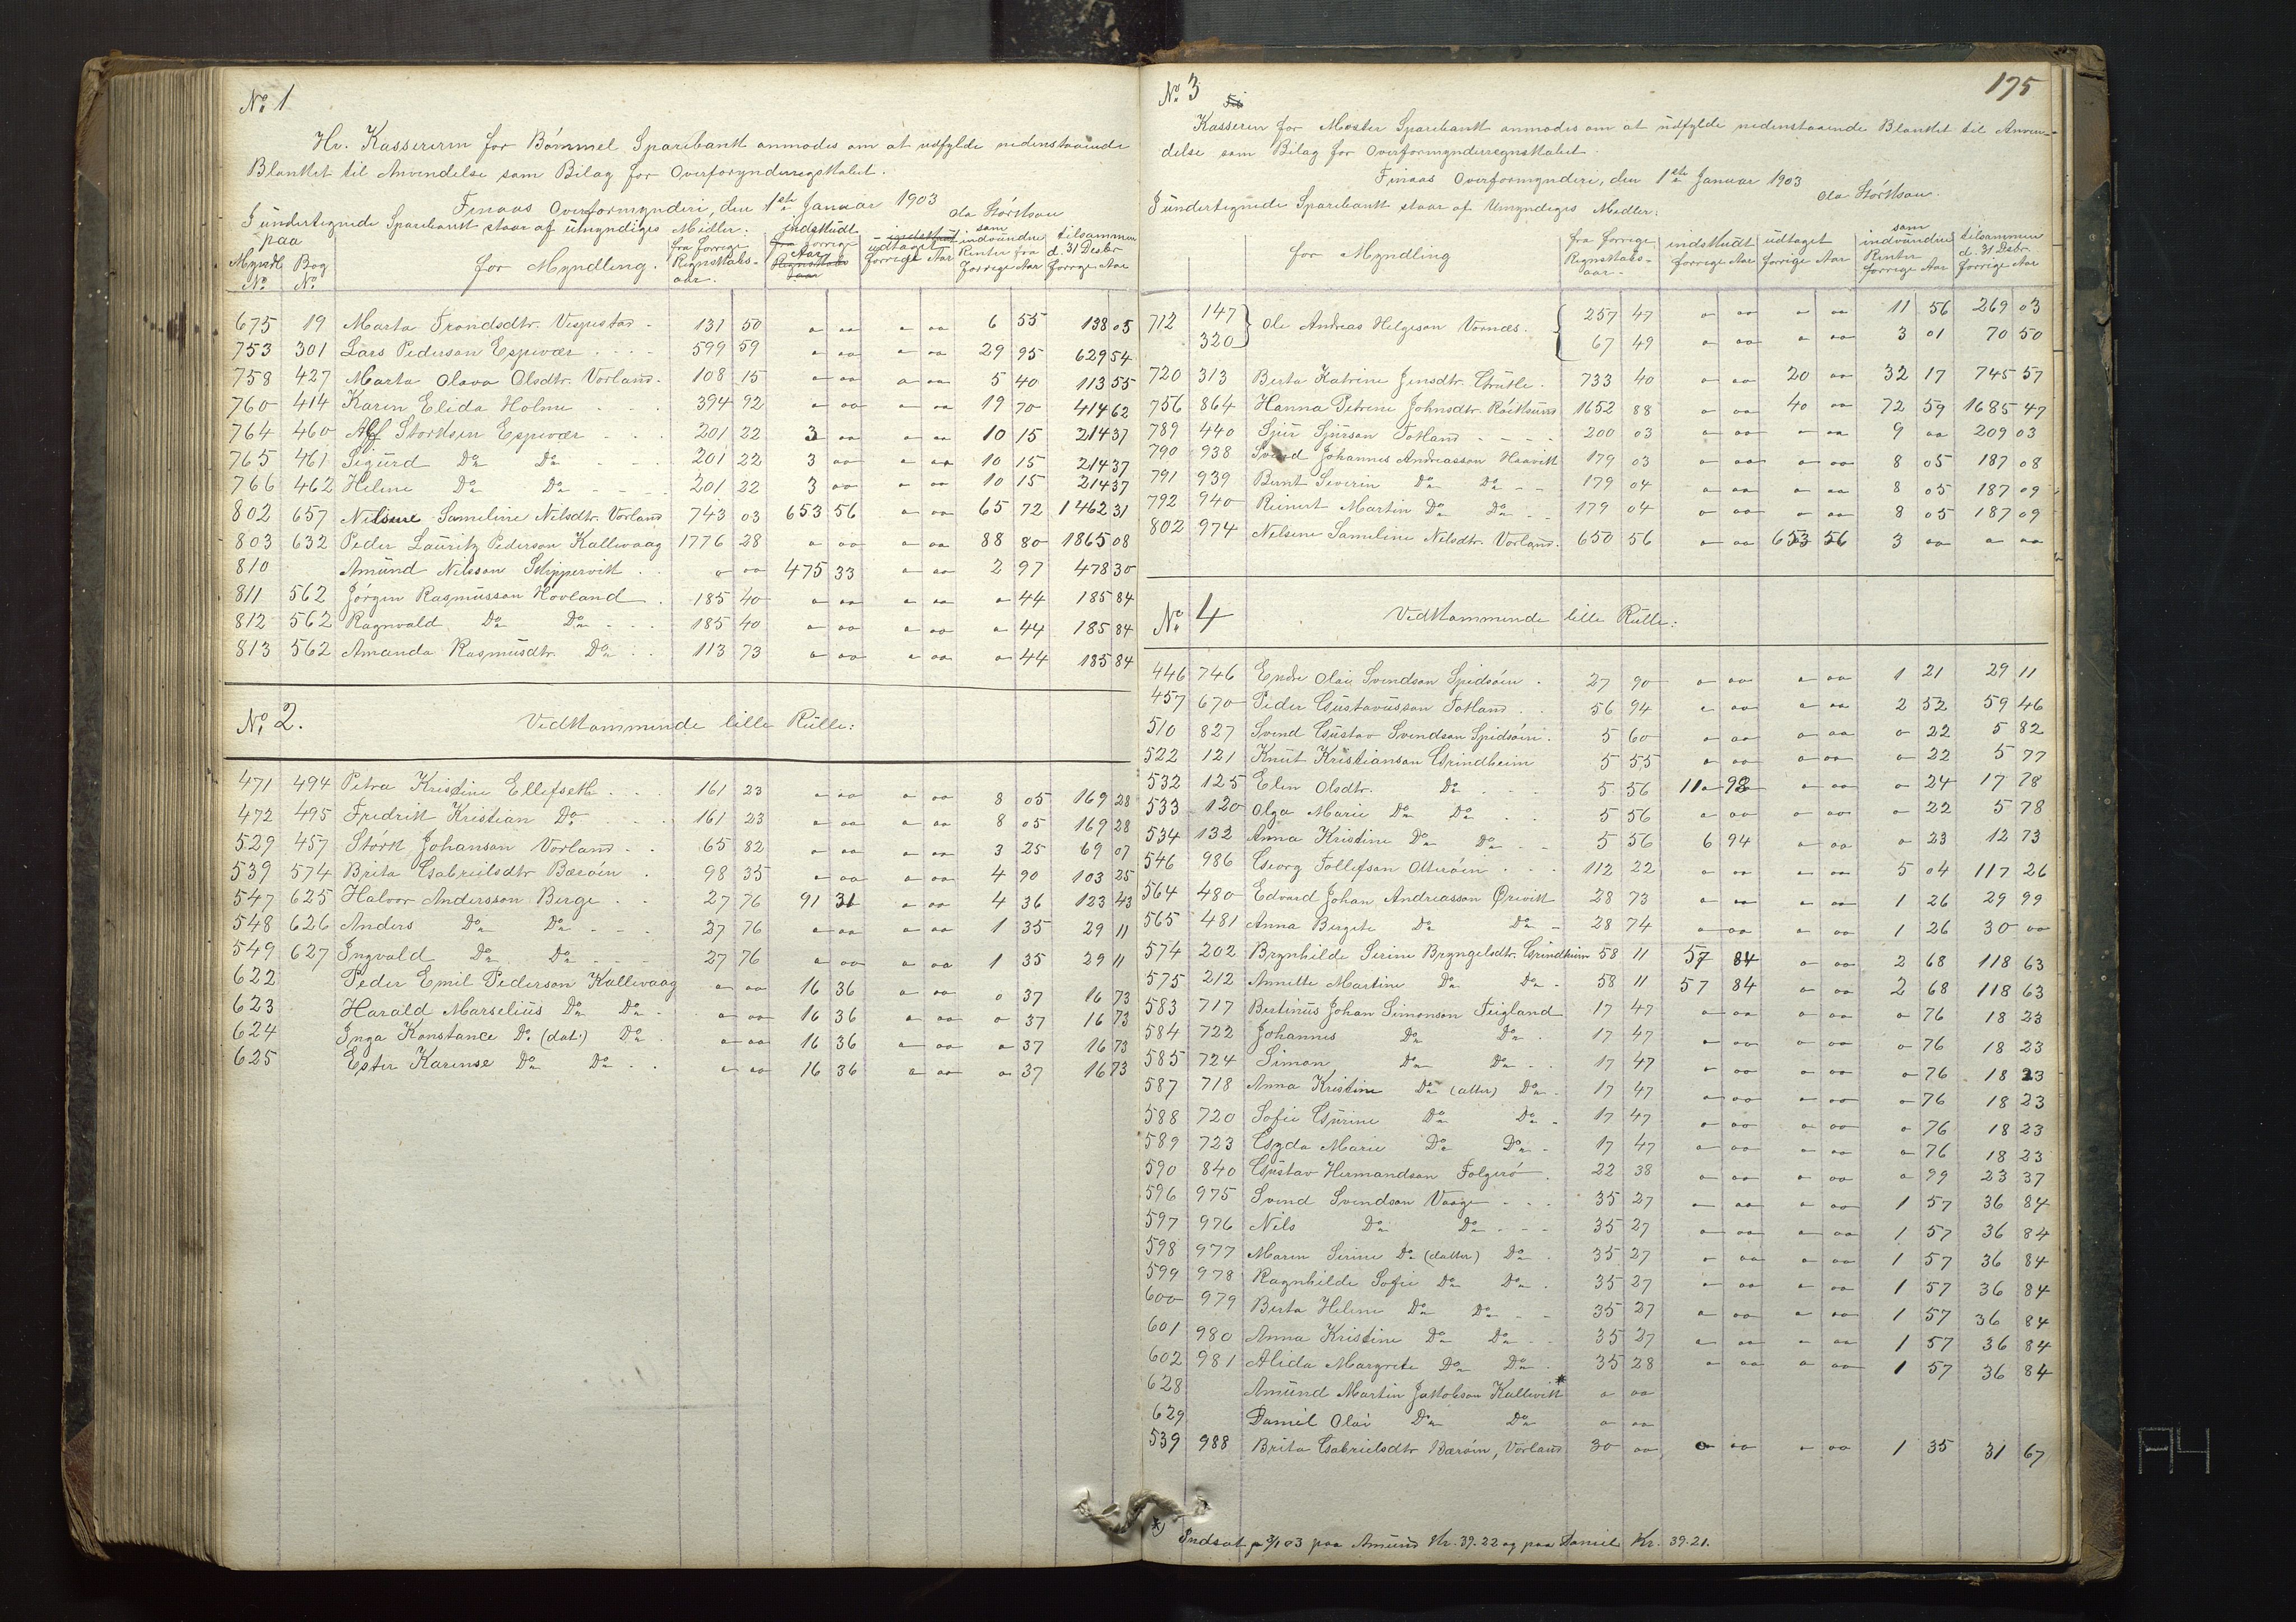 No. 1
Hr. Kassereren for Bömmel Sparebank anmodes om at udfylde nedenstaaende
Blanket til Anvendelse som Bilag for Overforynderregnskabet.
Finaas Overformynderi, den 1ste Januar 1903
Ola Störkson
I undertegnede Sparebank staar af umyndiges Midler:
paa
Myndl. No. Bog No. for Myndling. fra forrige Regnskabs-aar. indskudt forrige Aar udtaget forrige Aar som indvundne Renter fra forrige Aar tilsammen d. 31 Decbr. forrige Aar
675 19 Marta Trondsdtr. Vespestad . 131 50 " " " " 6 55 138 05
753 301 Lars Pederson Espevær . . . . 599 59 " " " " 29 95 629 54
758 427 Marta Olava Olsdtr. Vorland . 108 15 " " " " 5 40 113 55
760 414 Karen Elida Holme . . . 394 92 " " " " 19 70 414 62
764 460 Alf Storksen Espevær . . . 201 22 3 " " " 10 15 214 37
765 461 Sigurd Do Do . . . 201 22 3 " " " 10 15 214 37
766 462 Helene Do Do . . . 201 22 3 " " " 10 15 214 37
802 657 Nelsine Sameline Nilsdtr. Vorland 743 03 653 56 " " 65 72 1462 31
803 632 Peder Lauritz Pederson Kallevaag 1776 28 " " " " 88 80 1865 08
810 Amund Nilsson Skippervik . . " " 475 33 " " 2 97 478 30
811 562 Jörgen Rasmusson Hovland . 185 40 " " " " " 44 185 84
812 562 Ragnvald Do Do . . . 185 40 " " " " " 44 185 84
813 562 Amanda Rasmusdtr. Do . . 113 73 " " " " " 44 185 84
No. 2. Vedkommende lille Rulle:
471 494 Petra Kristine Ellefseth . . . 161 23 " " " " 8 05 169 28
472 495 Fredrik Kristian Do . . . 161 23 " " " " 8 05 169 28
529 457 Störk Johanson Vorland . . 65 82 " " " " 3 25 69 07
539 574 Brita Gabrielsdtr Bæröen . 98 35 " " " " 4 90 103 25
547 625 Halvor Andersson Berge . . 27 76 91 31 " " 4 36 123 43
548 626 Anders Do Do . . . 27 76 " " " " 1 35 29 11
549 627 Ingvald Do Do . . . 27 76 " " " " 1 35 29 11
622 Peder Emil Pederson Kallevaag " " 16 36 " " " 37 16 73
623 Harald Marselius Do Do . " " 16 36 " " " 37 16 73
624 Inga Konstance Do (dat.) Do . " " 16 36 " " " 37 16 73
625 Ester Karense Do Do . . " " 16 36 " " " 37 16 73
No. 3
175
Kasseren for Moster Sparebank anmodes om at udfylde nedenstaaende Blanket til Anven-
delse som Bilag for Overformynderregnskabet.
Finaas Overformynderi, den 1ste Januar 1903
Ola Störkson.
I undertegnede Sparebank staar af Umyndiges Midler:
for Myndling fra forrige Regnskabs-aar. indskudt forrige Aar udtaget forrige Aar som indvundne Renter forrige Aar tilsammen d. 31 Decbr. forrige Aar
712 147 } Ole Andreas Helgeson Vornæs. { 257 47 " " " " 11 56 269 03
320 67 49 " " " " 3 01 70 50
720 313 Berta Katrine Jensdtr. Grutle . 733 40 " " 20 " 32 17 745 57
756 864 Hanna Petrine Johnsdtr. Röiksund 1652 88 " " 40 " 72 59 1685 47
789 440 Sjur Sjurson Totland . . . . 200 03 " " " " 9 " 209 03
790 938 Svend Johannes Andreasson Haavik 179 03 " " " " 8 05 187 08
791 939 Bernt Severin Do Do . . 179 04 " " " " 8 05 187 09
792 940 Reinert Martin Do Do . . 179 04 " " " " 8 05 187 09
802 974 Nelsine Sameline Nilsdtr. Vorland . 650 56 " " 653 56 3 " " "
No. 4 Vedkommende lille Rulle:
446 746 Endre Olai Svendson Spidsöen . 27 90 " " " " 1 21 29 11
457 670 Peder Gustavusson Totland . . 56 94 " " " " 2 52 59 46
510 827 Svend Gustav Svendson Spidsöen . 5 60 " " " " " 22 5 82
522 121 Knut Kristianson Grindheim 5 55 " " " " " 22 5 77
532 125 Elen Olsdtr. Do . . . 5 56 11 98 " " " 24 17 78
533 120 Olga Marie Do Do . . 5 56 " " " " " 22 5 78
534 132 Anna Kristine Do Do . . 5 56 6 94 " " " 23 12 73
546 986 Georg Tollefson Otteröen . . . 112 22 " " " " 5 04 117 26
564 480 Edvard Johan Andreasson Ørevik 28 73 " " " " 1 26 29 99
565 481 Anna Bergete Do Do . 28 74 " " " " 1 26 30 "
574 202 Brynhilde Serine Bryngelsdtr. Grindheim 58 11 57 84 " " 2 68 118 63
575 212 Annette Martine Do Do . 58 11 57 84 " " 2 68 118 63
583 717 Bertinus Johan Simonson Teigland 17 47 " " " " " 76 18 23
584 722 Johannes Do Do . 17 47 " " " " " 76 18 23
585 724 Simon Do Do . . 17 47 " " " " " 76 18 23
587 718 Anna Kristine Do (atter) Do . 17 47 " " " " " 76 18 23
588 720 Sofie Gurine Do Do . 17 47 " " " " " 76 18 23
589 723 Gyda Marie Do Do . 17 47 " " " " " 76 18 23
590 840 Gustav Hermandson Folgerö . 22 38 " " " " " 99 23 37
596 975 Svend Svendson Vaage . . . 35 27 " " " " 1 57 36 84
597 976 Nils Do Do . . . 35 27 " " " " 1 57 36 84
598 977 Maren Serine Do (datter) Do . 35 27 " " " " 1 57 36 84
599 978 Ragnhilde Sofie Do Do . 35 27 " " " " 1 57 36 84
600 979 Berta Helene Do Do . . 35 27 " " " " 1 57 36 84
601 980 Anna Kristine Do Do . . 35 27 " " " " 1 57 36 84
602 981 Alida Margrete Do Do . 35 28 " " " " 1 57 36 84
628 Amund Martin Jakobson Kallevik * " "
629 Daniel Olai Do Do " "
539 988 Brita Gabrielsdtr Bæröen, Vorland 30 " " " " " 1 35 31 67
*) Indsat p 3/1 03 paa Amund Kr. 39.22 og paa Daniel Kr. 39.21.